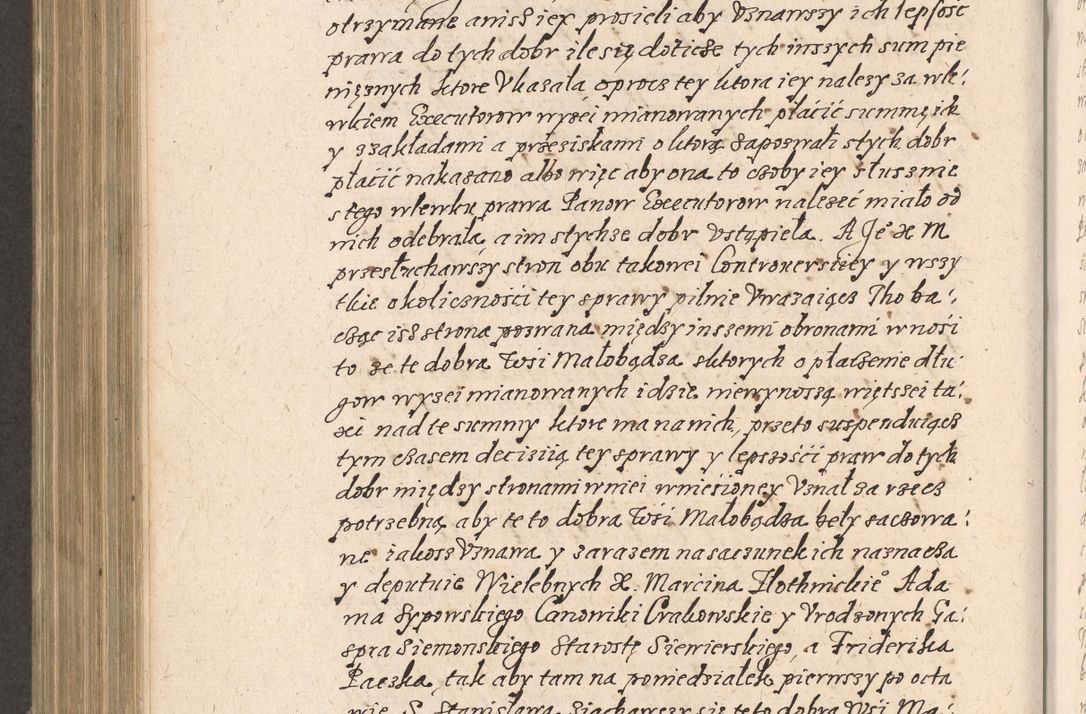 otrzymane anisz iey prosieli aby Vznawszy ich lepsość
prawa do tych dobr ile się doticże tych inszych sum pie
niężnych ktore Vkazała oprocz tey ktora iey należy za wle:
wkiem Execcutorow wyżei mianowanych płacić summę ich
y zzakładami a przeziskami o ktorą zapozwali stych dobr
płacić nakazano albo więc aby ona to czoby iey słusznie
s tego wlewku prawa Panow Execcutorow należeć miało od
nich odebrała, a im stychże dobr Vstąpieła. A Je° x M
przesłuchawszy stron obu takowei Controuersiiey y wszy
tkie okoliczności tey sprawy pilnie Vważaiącz Tho ba:
cżąc isż strona pozwana między inszemi obronami wnośi
to że te dobra Wśi Małobądza zktorych o płaczenie dłu
gow wyżei mianowanych idzie niewynoszą więtszei ta:
xei nad te summy ktore ma na nich, przeto suspenduiącz
tym czasem deciziią tey sprawy y lepszośći praw do tych
dobr między stronami wniei wniesioney Vznał za rzecz
potrzebną aby te to dobra Wśi Małobądza beły zaczowa:
ne iakosz Vznawa y zarazem na szaczunek ich naznacza
y deputuie Wielebnych X. Marcina Kłothnickie° Ada
ma Sypowskiego Canoniki Crakowskie y Vrodzonych Ga:
spra Siemonskiego Starostę Siewierskiego, a Friderika
Paczka, tak aby tam na poniedziałek pierwszy po octa
wie S. Stanisława Ziachawszy się te to dobra Wśi Ma: